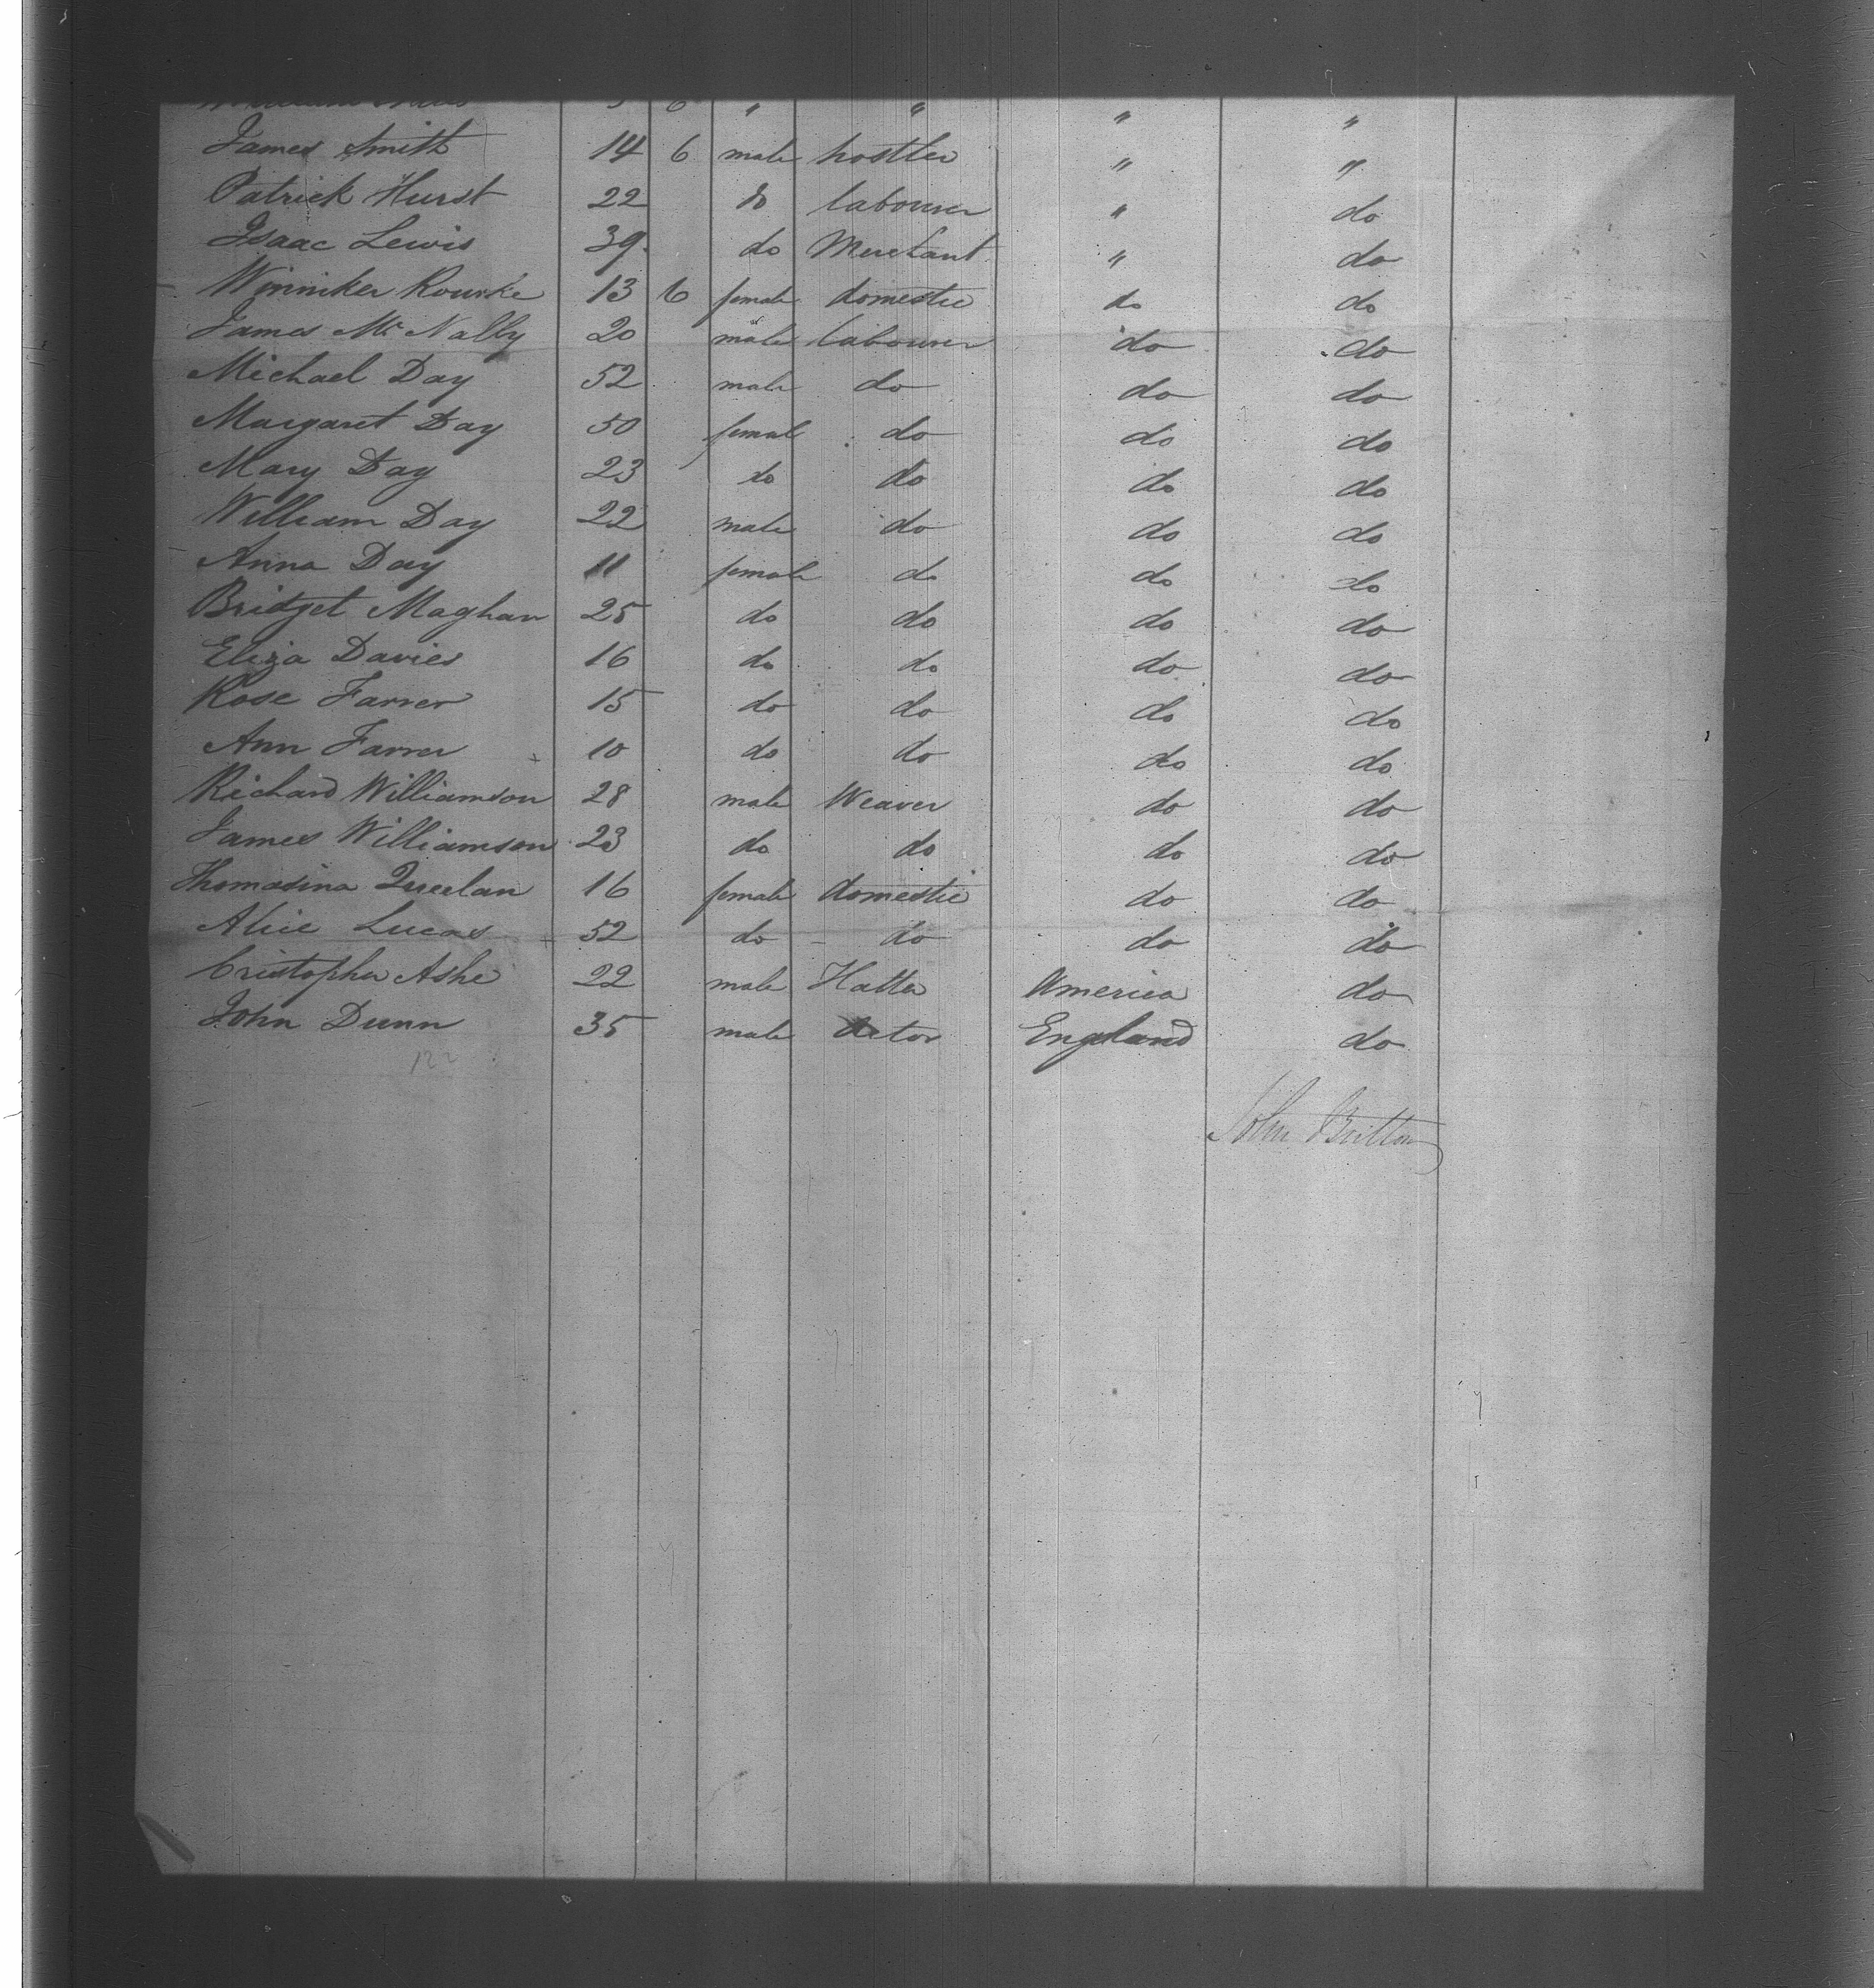 " " " "
James Smith 14 6 male hostler " "
Patrick Hurst 22 do labourer " do
Isaac Lewis 39. do Merchant " do
Winniker Rourke 13 6 female domestic do do
James McNally 20 male labourer do do
Michael Day 52 male do do do
Margaret Day 50 femal do do do
Mary Day 23 do do do do
William Day 22 male do do do
Anna Day 11 female do do do
Bridget Maghan 25 do do do do
Eliza Davies 16 do do do do
Rose Farrer 15 do do do do
Ann Farrer 10 do do do do
Richard Williamson 28 male Weaver do do
James Williamson 23 do do do do
Thomasina 16 female domestic do do
Alice Lucas 52 do do do do
Cristopher Ashe 22 male Hatter America do
John Dunn 35 male England do
122
John Britton